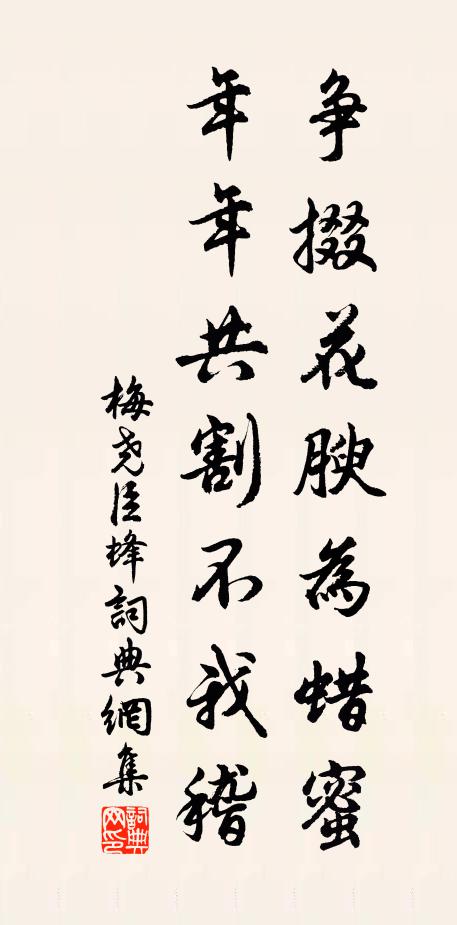 争掇花腴為蜡蜜
年年共割不我稽
梅堯臣蜂詞典網集
詞典
网印